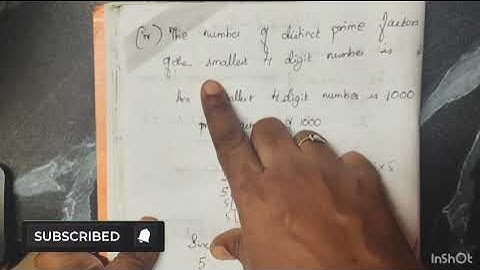 (iv) The number of distinct prime factors
of the smallest 4 digit number is
smallest 4 digit number is 1000
of 1000
× 5
5
5
5
5
SUBSCRIBED
InShOt